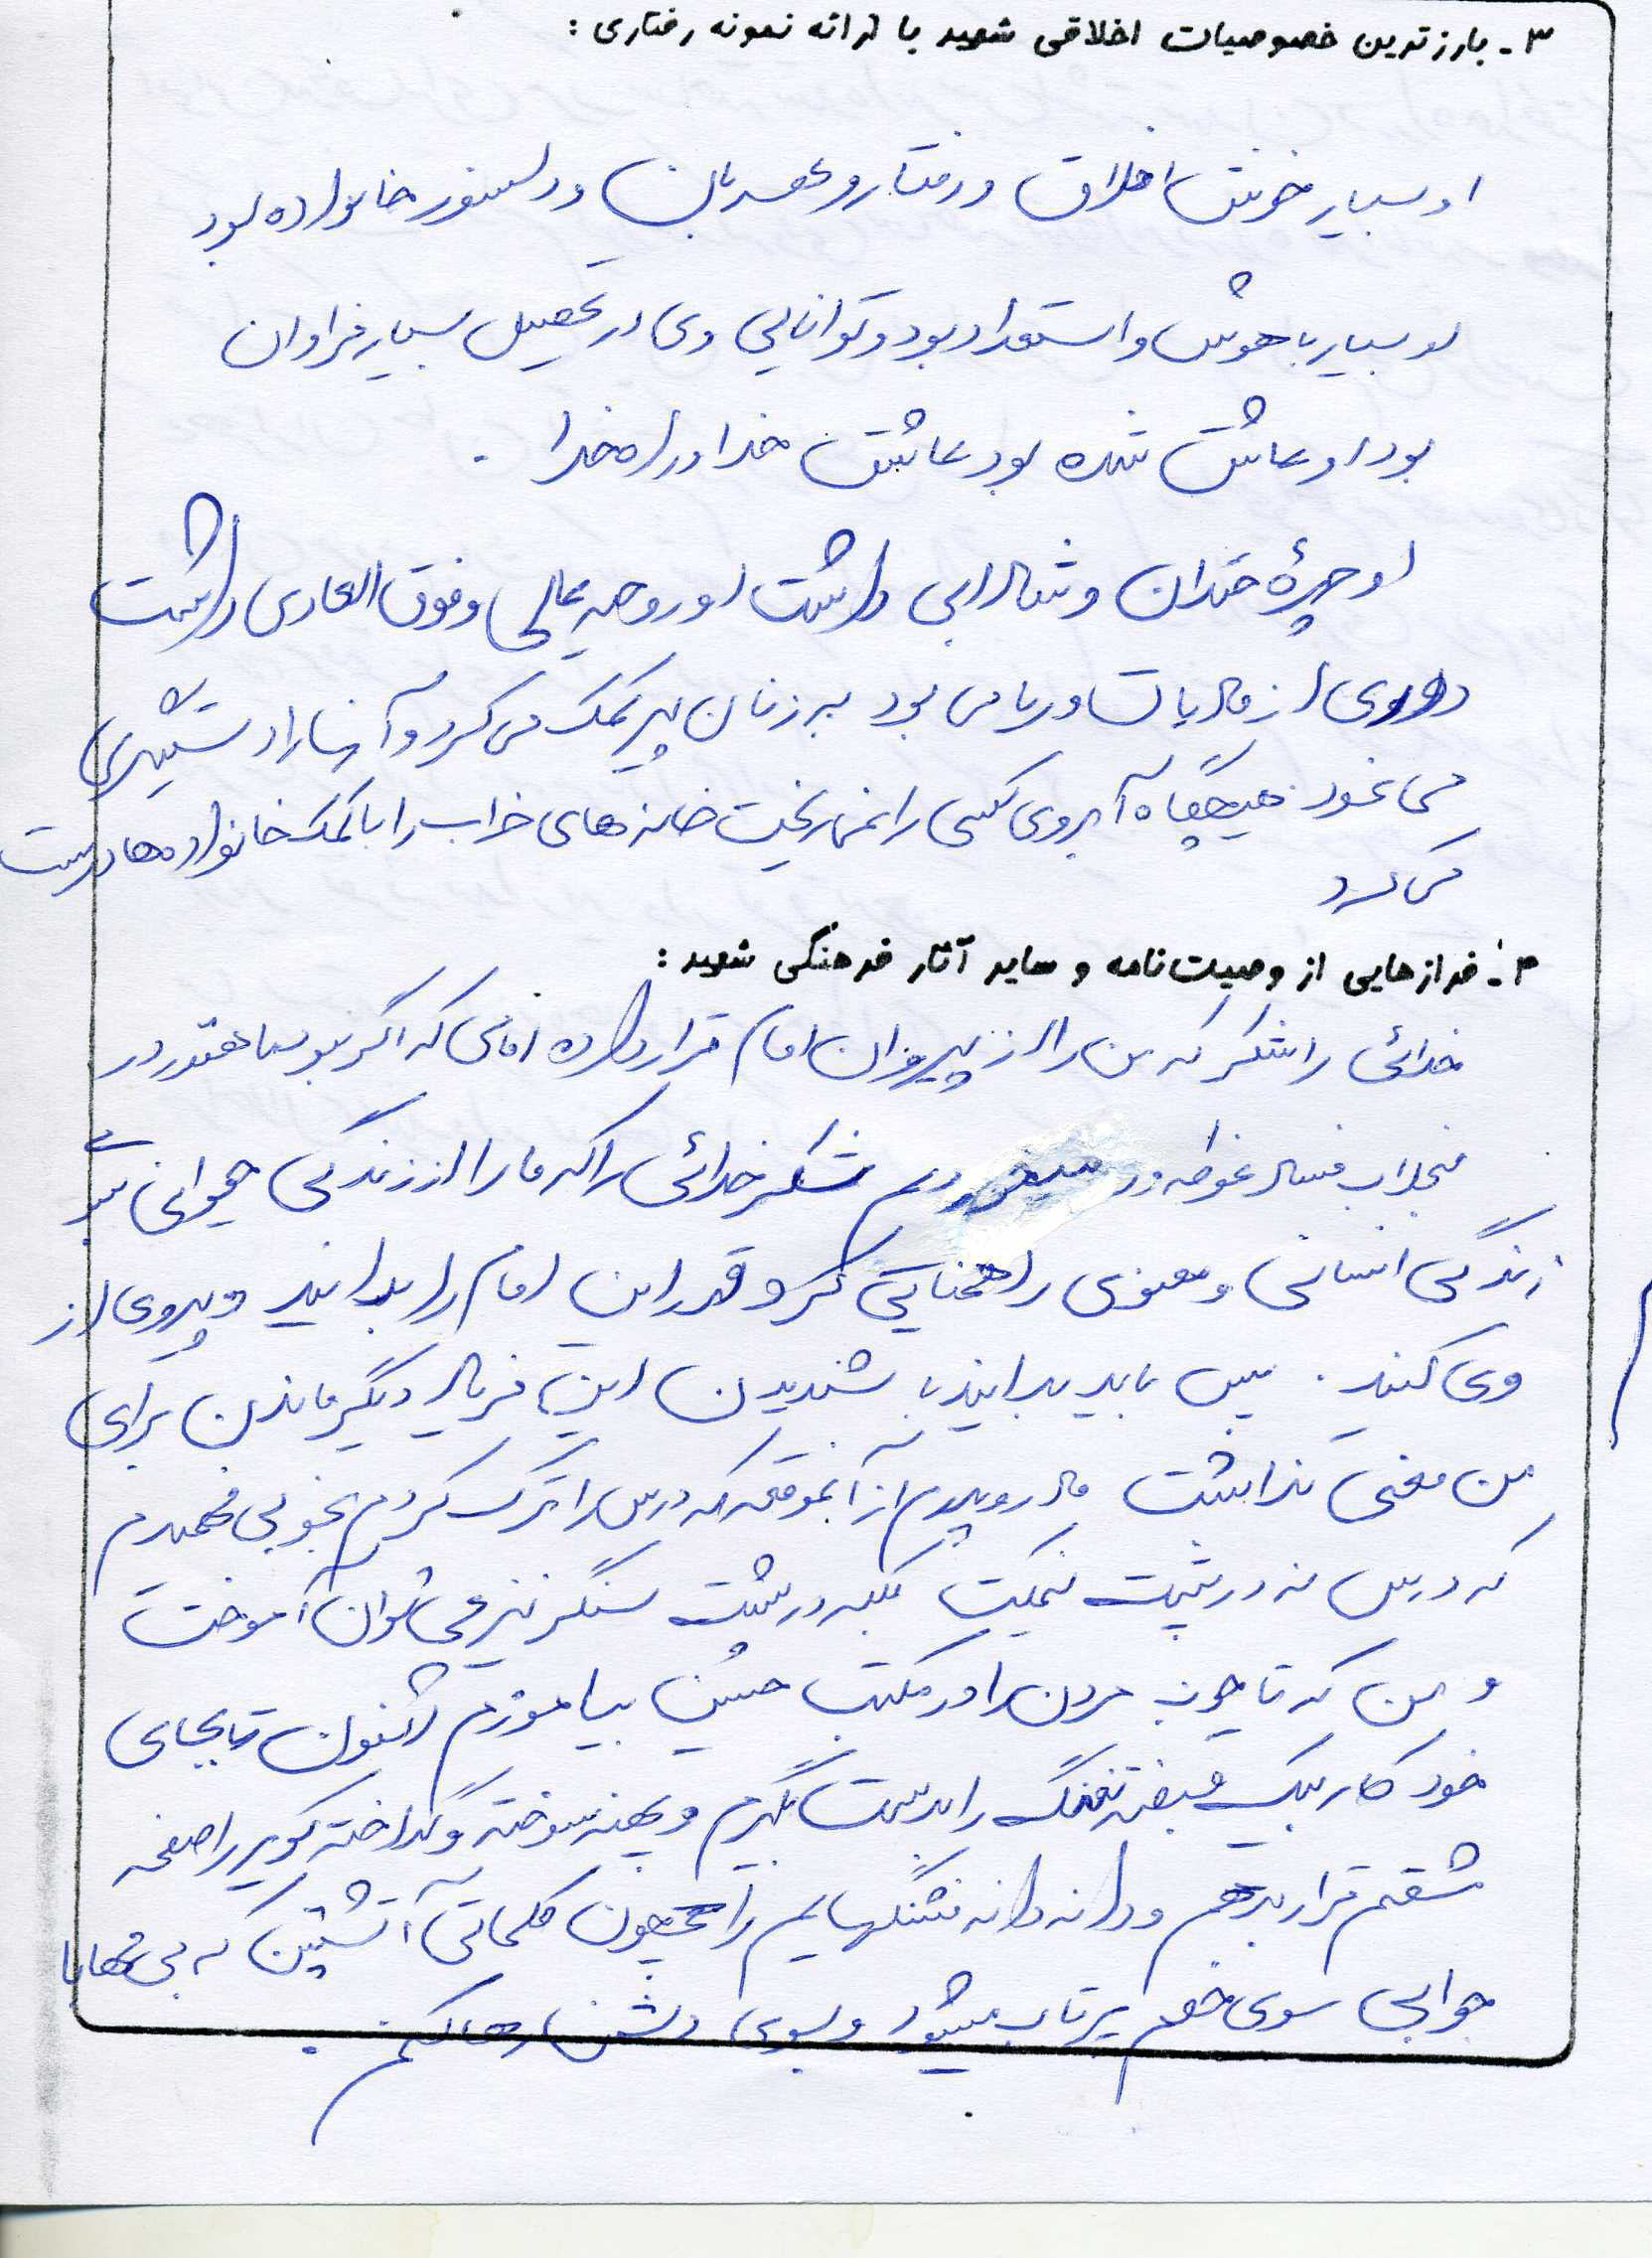 ۳- بارزترین خصوصیات اخلاقی شهید با ارائه نمونه رفتاری :
او بسیار خوش اخلاق و رفتار و مهربان و دلسوز خانواده بود
او بسیار باهوش و استعداد بود و توانایی وی در تحصیل بسیار فراوان
بود او عاشق شده بود عاشق خدا و راه خدا .
او چهرهٔ خندان و شادابی داشت او روحیه عالی و فوق العادی داشت
دوری از مادیات و ریا می بود به زنان پیر کمک می کرد و آنها را دستگیری
می نمود هیچگاه آبروی کسی را نمی ریخت خانه های خراب را با کمک خانواده ها درست
می کرد
۴- فرازهایی از وصیت نامه و سایر آثار فرهنگی شهید :
خدائی را شکر که من را از پیروان امام قرار داده امامی که اگر نبود ما هنوز در
منجلاب فساد غوطه ور میخوردیم شکر خدائی را که ما را از زندگی حیوانی به
زندگی انسانی و معنوی راهنمایی کرد قدر این امام را بدانید و پیروی از
وی کنید . پس باید بدانید با شنیدن این فریاد دیگر ماندن برای
من معنی نداشت مادر و پدرم از آنموقعه که درس را ترک کردم بخوبی فهمیدم
که درس نه در پشت نیمکت بلکه در پشت سنگر نیز می توان آموخت
و من که تا خوب مردن را در مکتب حسین بیاموزم اکنون تا بجای
خودکار بیک قبضه تفنگ را بدست بگیرم و پهنه سوخته و گداخته کویر را صفحه
مشقم قرار بدهم و دانه دانه فشنگهایم را همچون کلماتی آتشین که بی مهابا
جوابی سوی خصم پرتاب میشود و بسوی دشمن رها کنم .